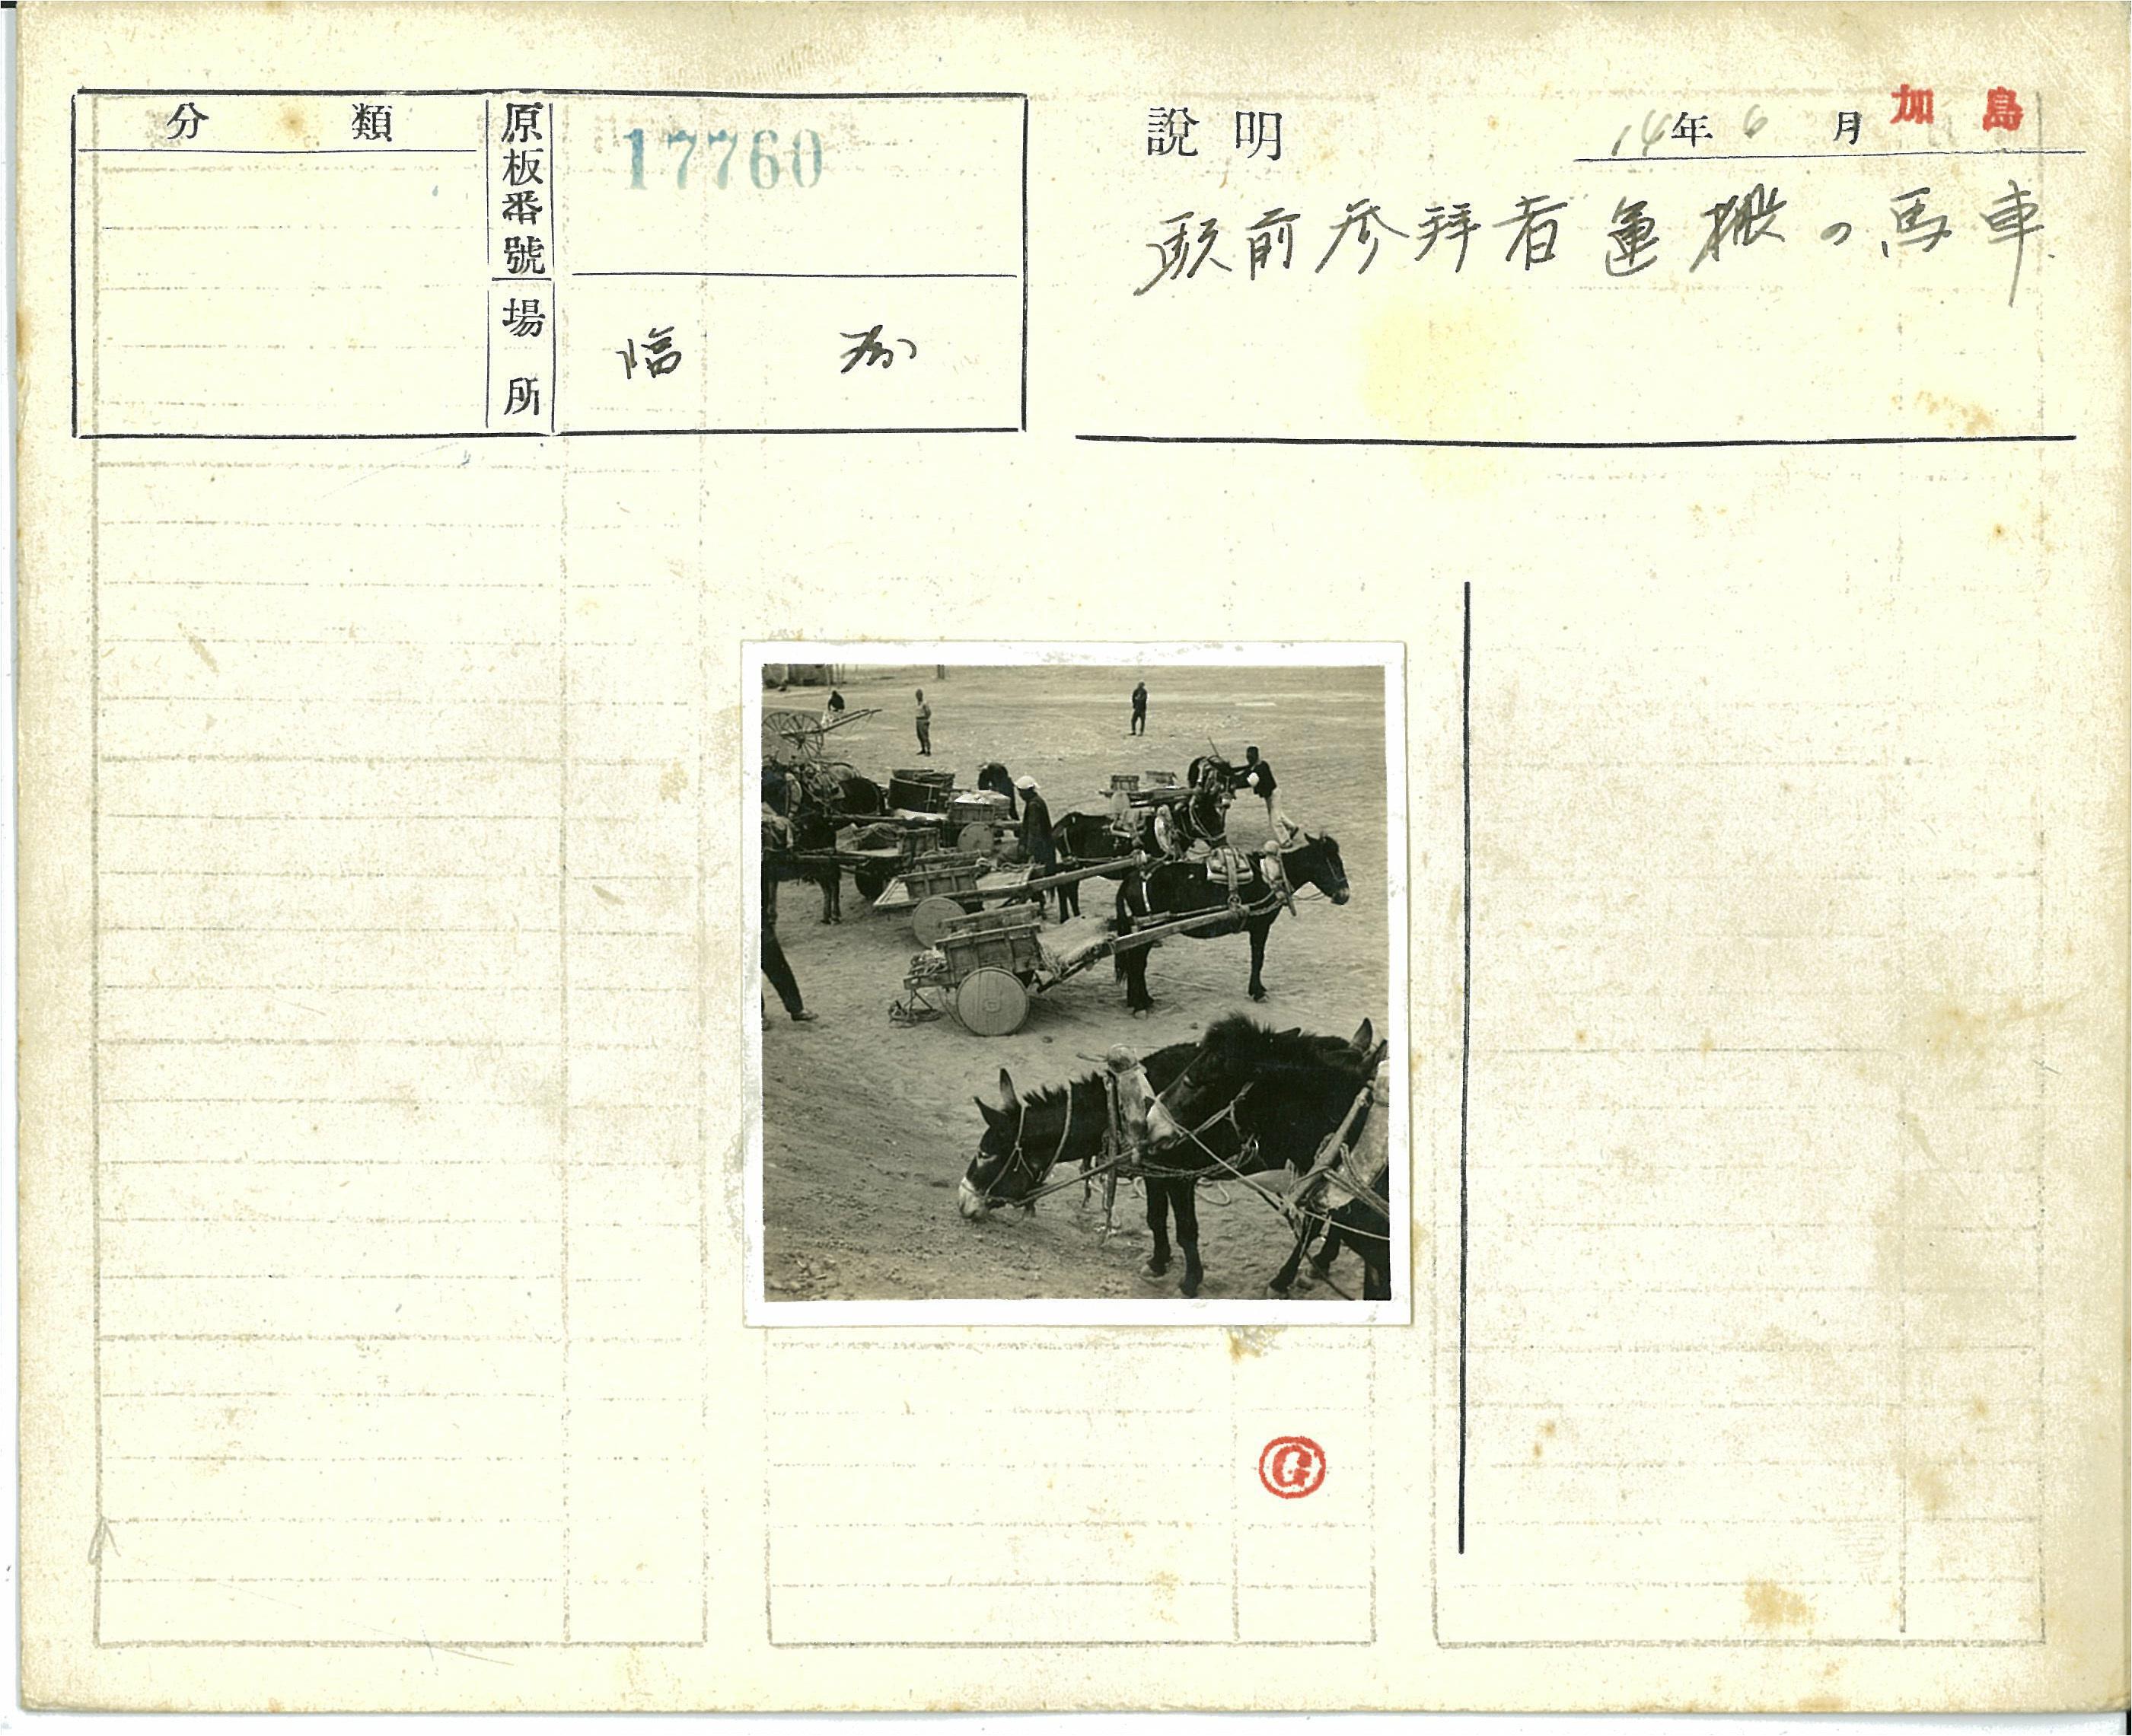 分類
原板番號
17760
場所
臨汾
説明
14年6月
加島
駅前参拝者運搬の馬車
G